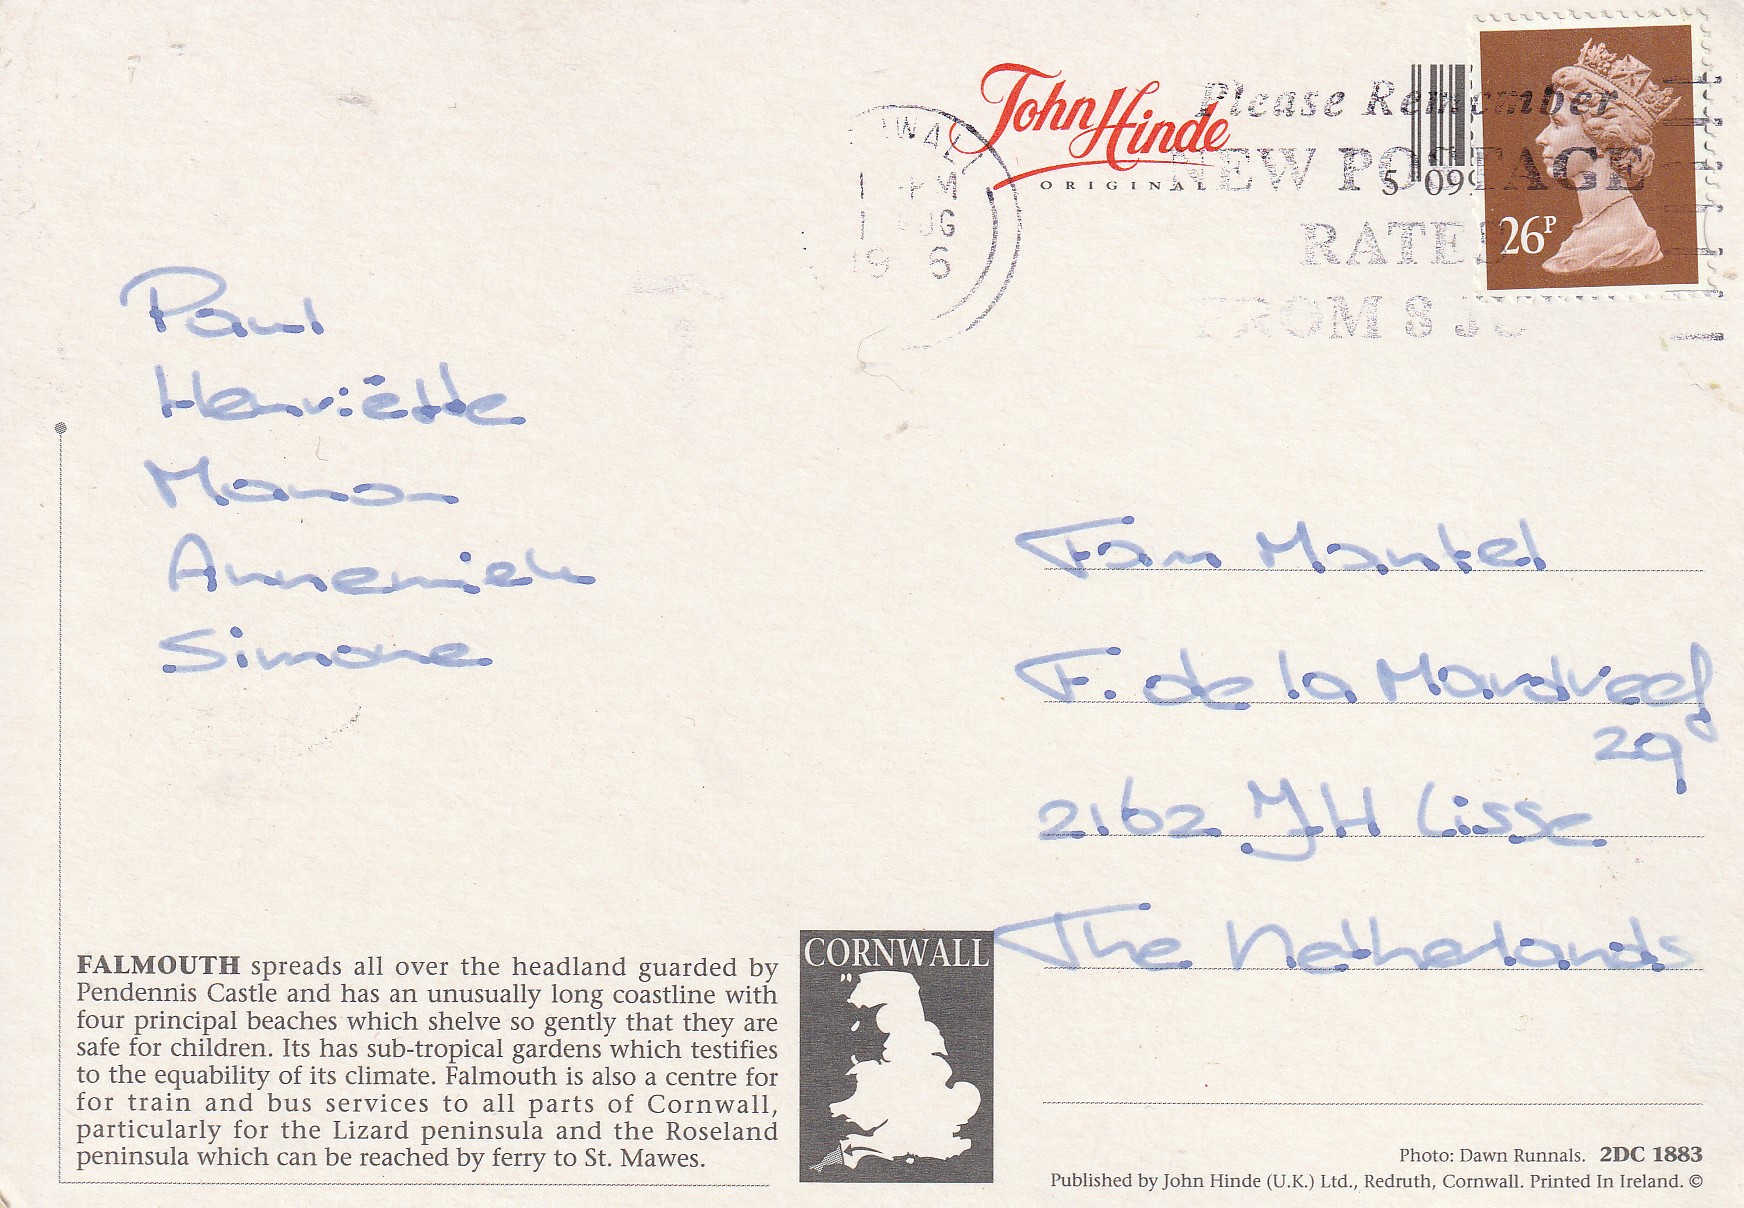 John Hinde
ORIGINAL
Please Remember
NEW POSTAGE
RATES
FROM 8 JU
5 099
26P
Paul
Henriëtte
Manon
Annemiek
Simone
Fam Mantel
F. de la Mardreef
29
2162 JH Lisse
The Netherlands
FALMOUTH spreads all over the headland guarded by
Pendennis Castle and has an unusually long coastline with
four principal beaches which shelve so gently that they are
safe for children. Its has sub-tropical gardens which testifies
to the equability of its climate. Falmouth is also a centre for
for train and bus services to all parts of Cornwall,
particularly for the Lizard peninsula and the Roseland
peninsula which can be reached by ferry to St. Mawes.
CORNWALL
Photo: Dawn Runnals. 2DC 1883
Published by John Hinde (U.K.) Ltd., Redruth, Cornwall. Printed In Ireland. ©